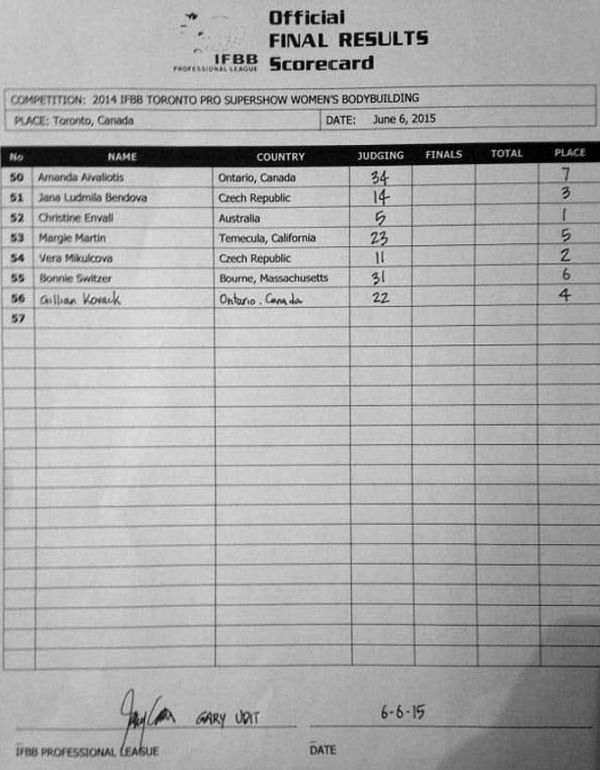 Official
FINAL RESULTS
Scorecard
IFBB
PROFESSIONAL LEAGUE
COMPETITION: 2014 IFBB TORONTO PRO SUPERSHOW WOMEN'S BODYBUILDING
PLACE: Toronto, Canada DATE: June 6, 2015
No NAME COUNTRY JUDGING FINALS TOTAL PLACE
50 Amanda Aivaliotis Ontario, Canada 34 7
51 Jana Ludmila Bendova Czech Republic 14 3
52 Christine Envall Australia 5 1
53 Margie Martin Temecula, California 23 5
54 Vera Mikulcova Czech Republic 11 2
55 Bonnie Switzer Bourne, Massachusetts 31 6
56 Gillian Kovack Ontario. Canada 22 4
57
GARY UDIT 6-6-15
IFBB PROFESSIONAL LEAGUE DATE